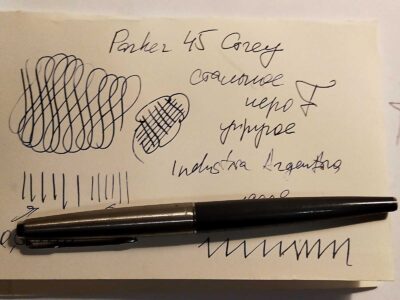 Parker 45
стальное
перо F
упругое
Industria Argentina